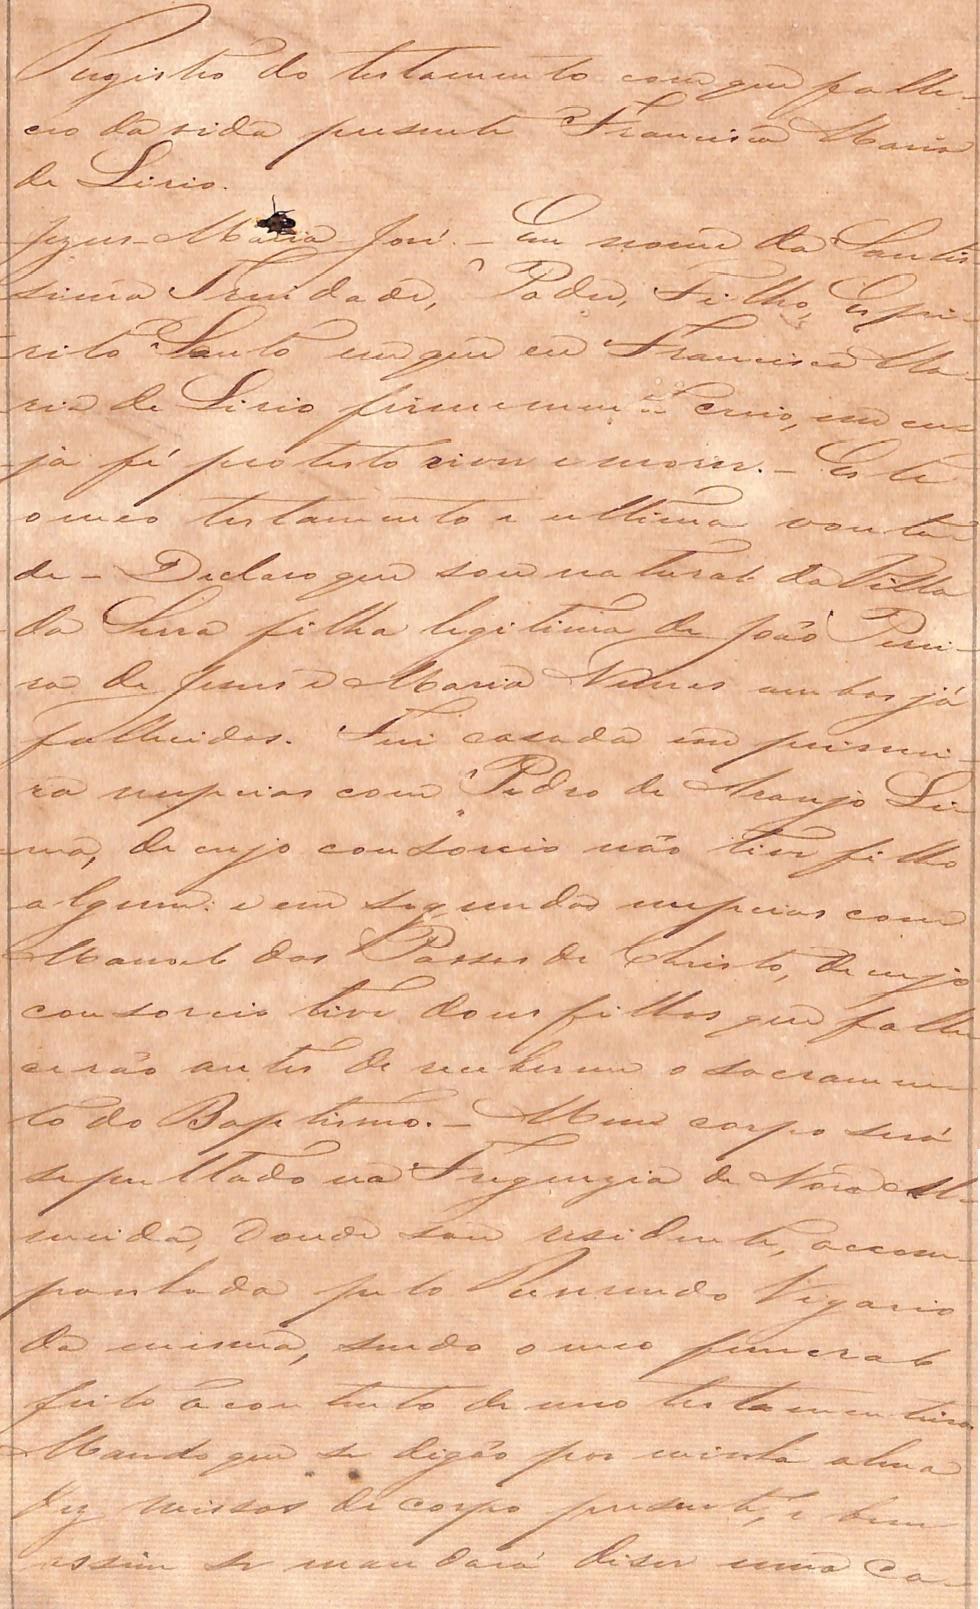 Registro do testamento com que falle-
ceo da vida presente Francisca Maria
de Lirio.
Jezus - Maria - José. - Em nome da Santis-
sima Trindade, Padre, Filho, Espi-
rito Santo em que eu Francisca Ma-
ria de Lirio firmemente creio, em cu-
ja fé protesto viver e morrer. - Este
o meo testamento e ultima vonta-
de - Declaro que sou natural da Villa
da Serra filha legitima de João Perei-
ra de Jesus e Maria Nunes ambos já
fallecidos. Fui casada em primei-
ra nupcias com Pedro de Araujo Li-
ma, de cujo consorcio não tive filho
algum: e em segundas nupcias com
Manoel dos Passos de Christo, de cujo
consorcio tive dous filhos que falle-
cerão antes de receberem o sacramen-
to do Baptismo. - Meu corpo será
sepultado na Freguezia de Nova Al-
meida, donde sou residente, accom-
panhada pelo Reverendo Vigario
da mesma, sendo o meo funeral
feito a contento de meo testamenteiro.
Mando que se digão por minha alma
dez missas de corpo presente, e bem
assim se mandará diser uma ca-